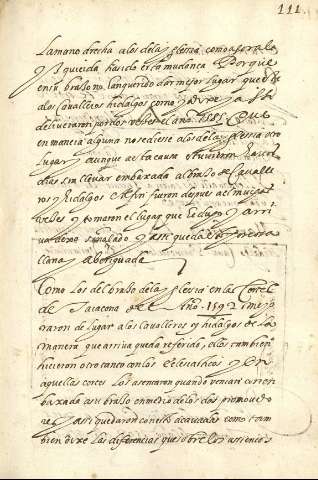 111.
La mano drecha a los de la yglesia, como aora les
yzquierda, ha sido esta mudança Porque
en su brasso no han querido dar mejor lugar que
a los Cavalleros hidalgos como
el año 1585 Que
en manera alguna no se diesse a los de la yglesia otro
Lugar y aunque a esta causa estuvieron
dias, sin llevar embaxada al brasso de Cavalle
ros y hidalgos Al fin fueron despues
y tomaron el lugar que y arri
va dexo señalado y assi queda esto por cosa
llana y aberiguada
Como Los del brasso de la yglesia en las Cortes
de Taraçona del Año 1592 mejo
raron de lugar a los Cavalleros y hidalgos de la
manera que arriva queda referido, ellos tambien
hicieron otro tanto con los Eclesiasticos y En
aquellas cortes Los asentaron quando venian con em
baxada a su brasso en medio de los dos promovedo
res y assi quedaron con esto acavadas como tam
bien dixe las diferencias que sobre los assientos